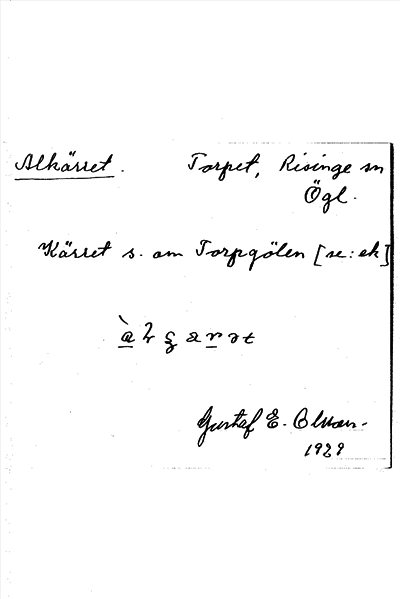 Alkärret. Torpet, Risinge sn
Ögl.
Kärret s. om Torpgölen [se: ek]
Gustaf E.
1929